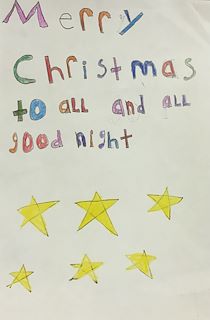 Merry
Christmas
to all and all
good night